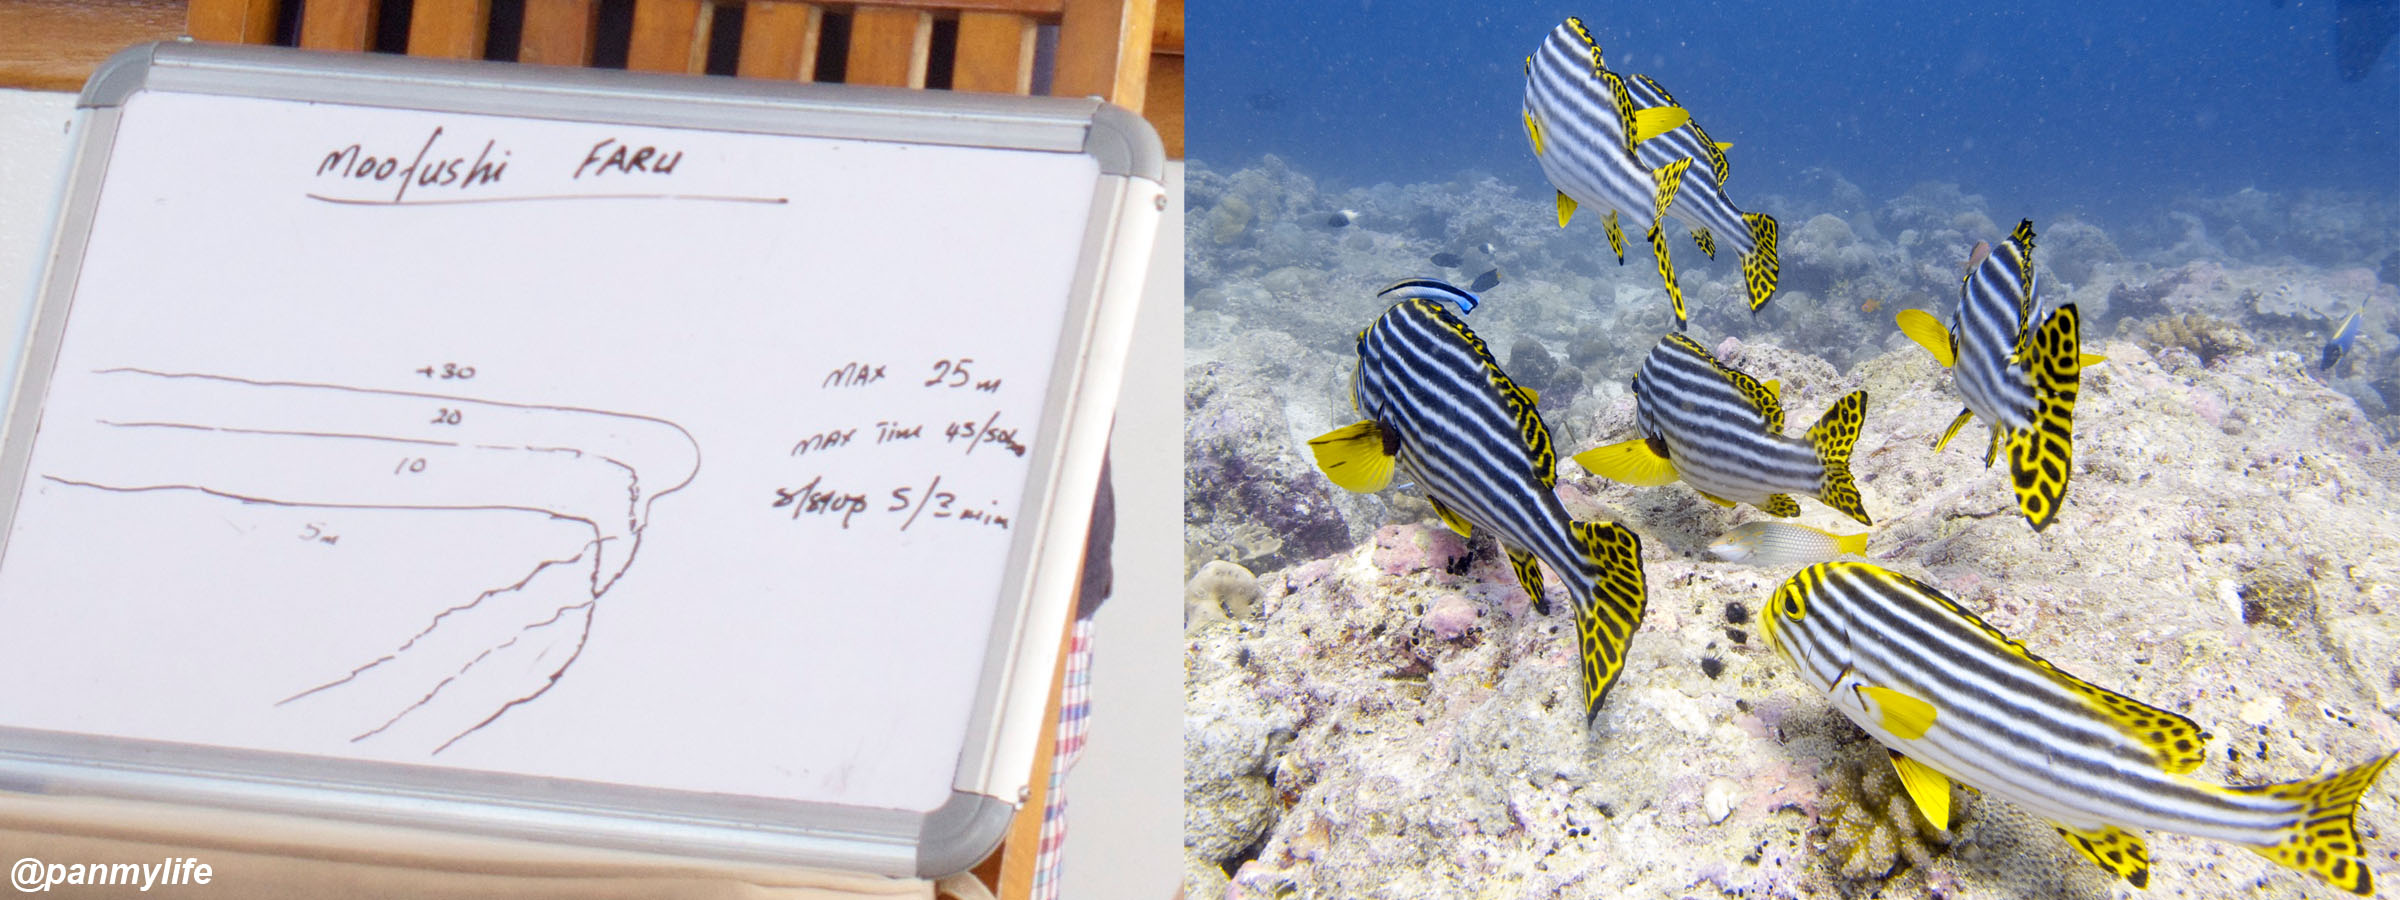 Moofushi FARU
+30
20
10
5m
MAX 25m
MAX Time 45/50
s/stop 5/3 min
@panmylife